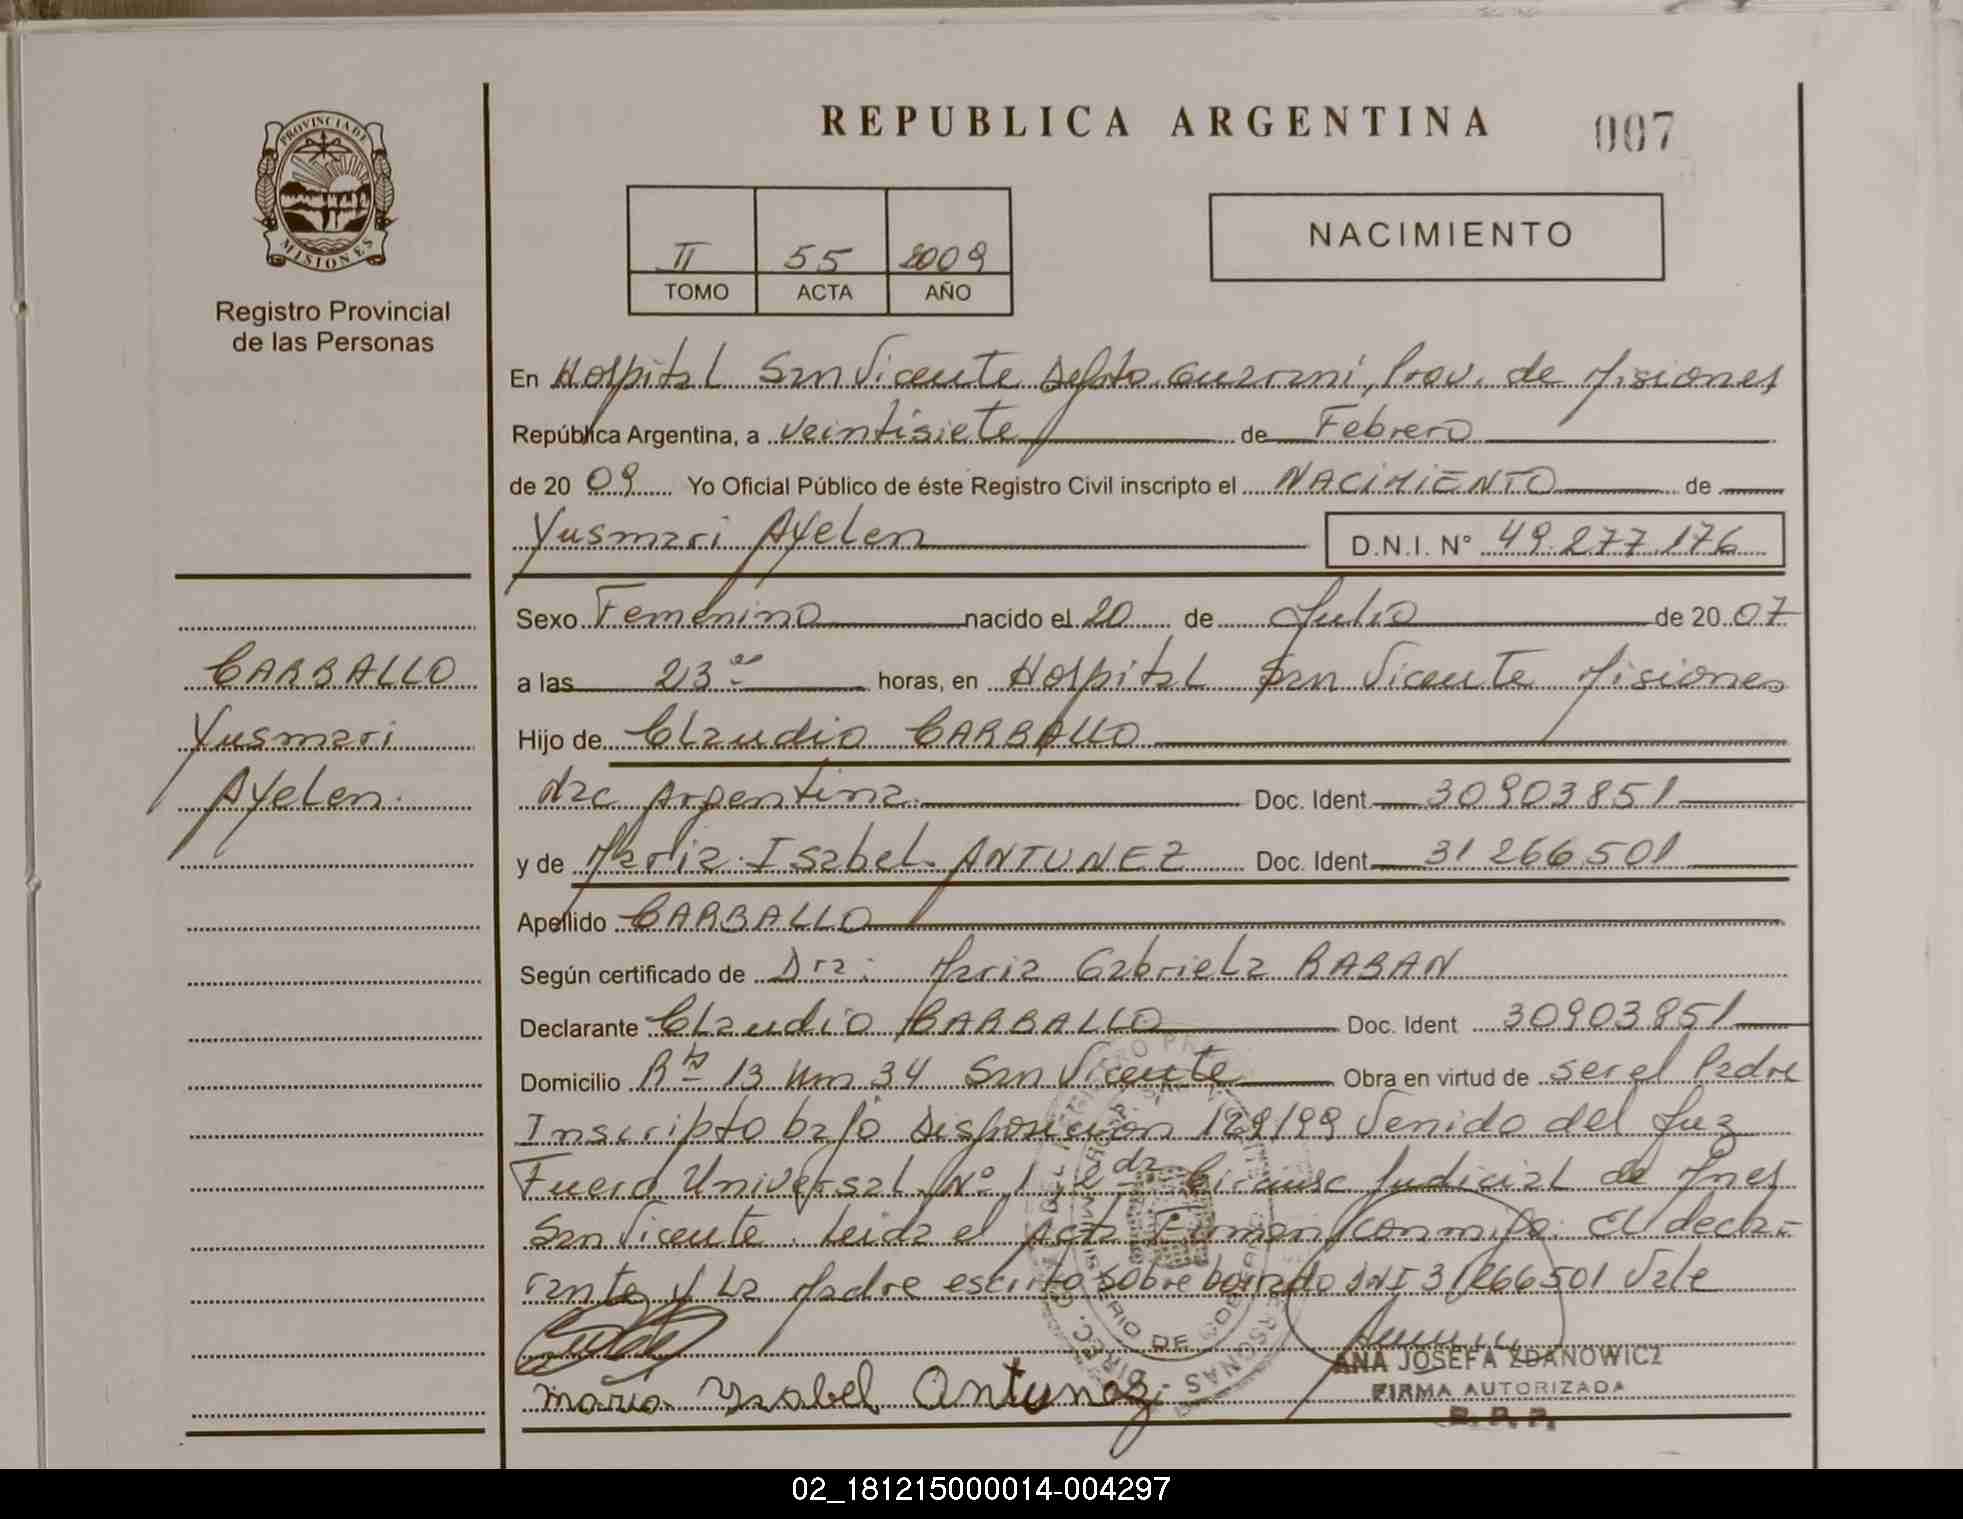 REPUBLICA ARGENTINA
007
PROVINCIA DE
MISIONES
Registro Provincial
de las Personas
II 55 2009
TOMO ACTA AÑO
NACIMIENTO
En Hospital San Vicente Depto. Guarani, Prov. de Misiones
República Argentina, a veintisiete de Febrero
de 20 09 Yo Oficial Público de éste Registro Civil inscripto el NACIMIENTO de
Yusmari Ayelen D.N.I. N° 49.277.176
Sexo Femenino nacido el 20 de Julio de 20 07
a las 23 horas, en Hospital San Vicente Misiones
Hijo de Claudio CARBALLO
Nac Argentina. Doc. Ident 30903851
y de Maria Isabel ANTUNEZ Doc. Ident 31266501
Apellido CARBALLO
Según certificado de Dra: Maria Gabriela RABAN
Declarante Claudio CARBALLO Doc. Ident 30903851
Domicilio Rta 13 Km 34 San Vicente Obra en virtud de ser el Padre
Inscripto bajo Disposicion 129/99 Venido del Juz
Fuero Universal N° 1, 2da Circunsc Judicial de Mnes
San Vicente. Leida el Acta Firman conmigo: El decla-
rante y La Madre escrito sobre borrado DNI 31266501 Vale
maria Ysabel Antunez
ANA JOSEFA ZDANOWICZ
FIRMA AUTORIZADA
R. P. P.
CARBALLO
Yusmari
Ayelen.
02_181215000014-004297